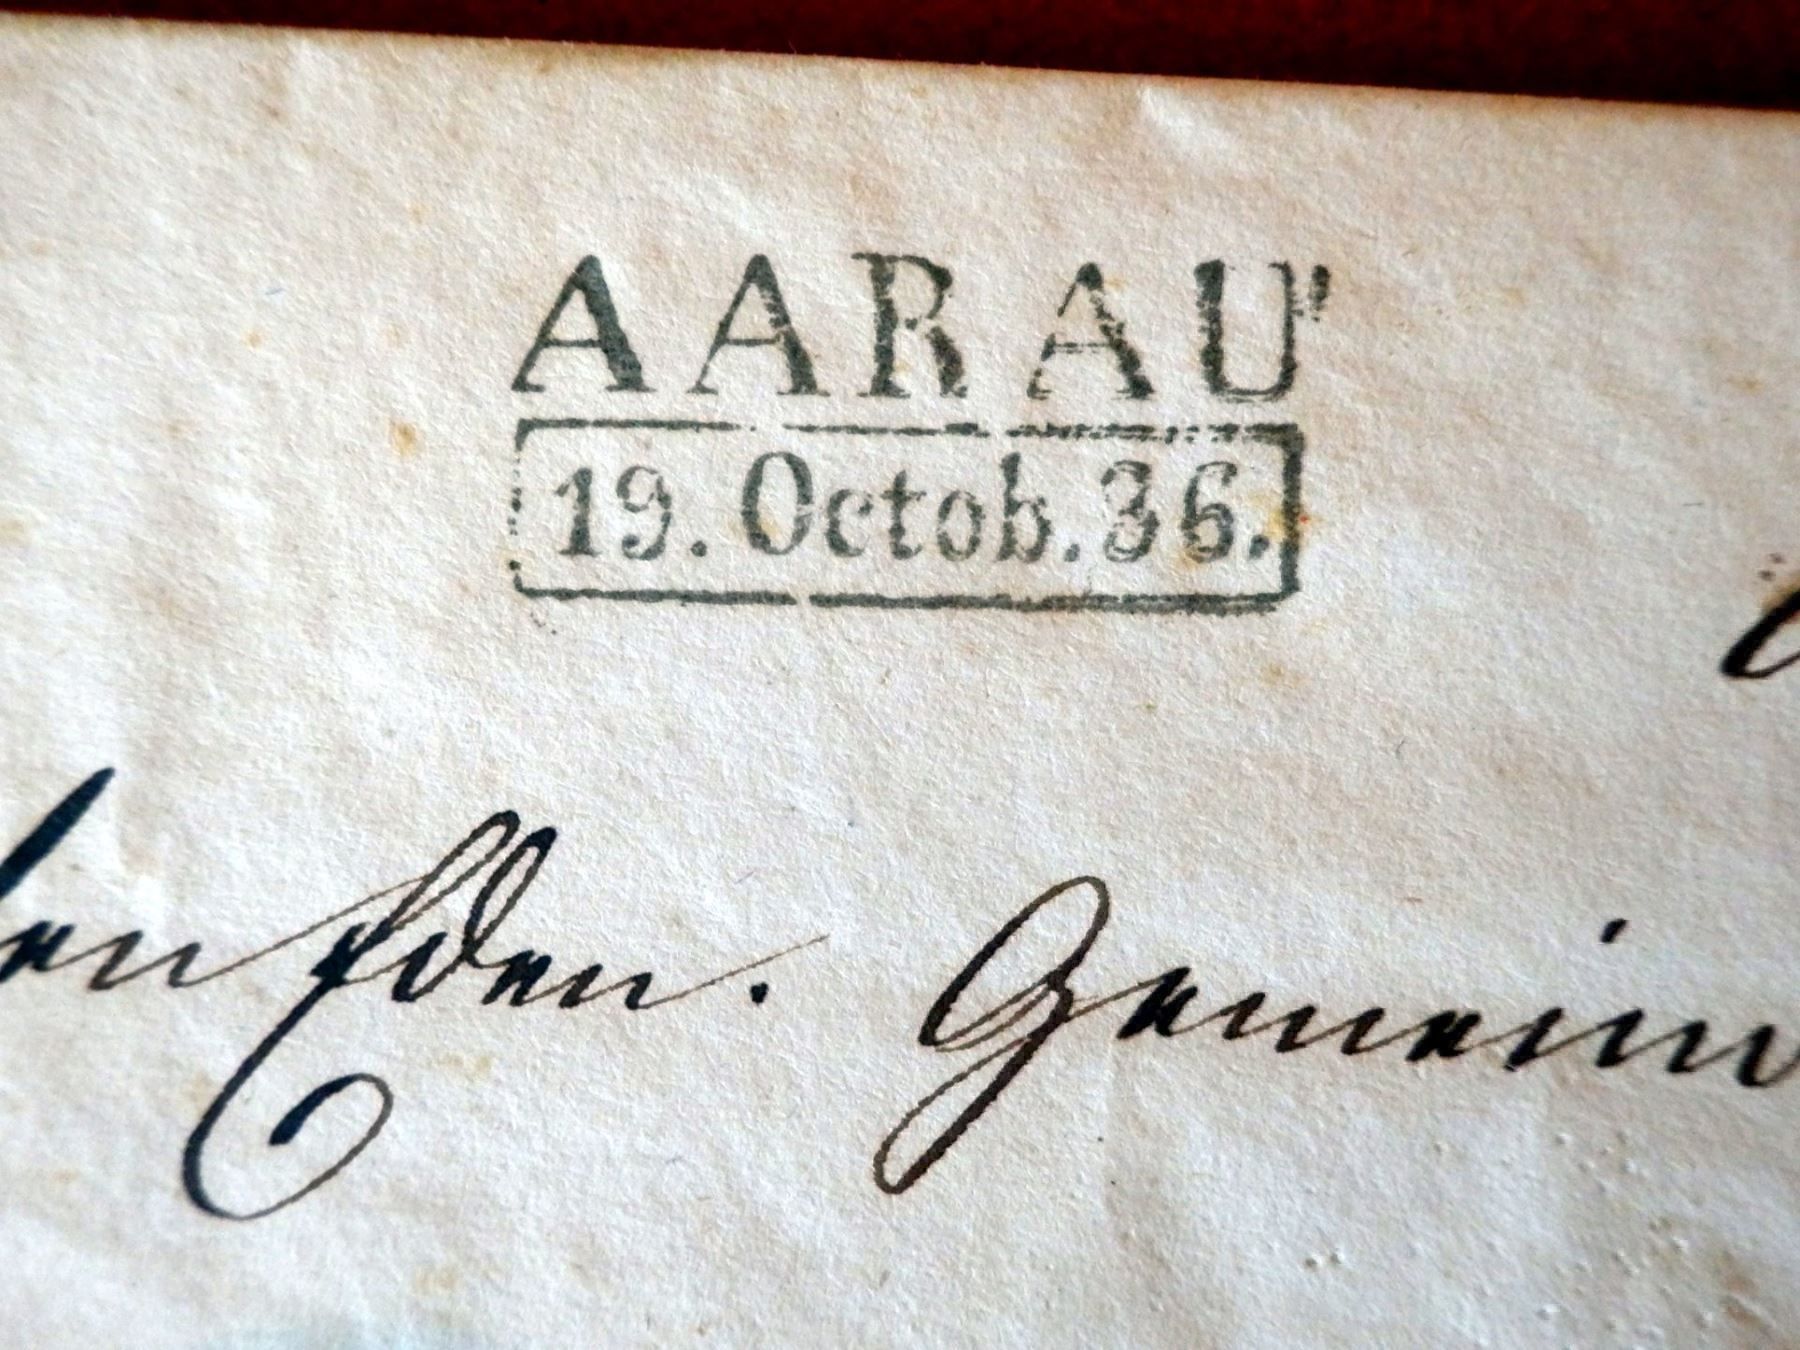 AARAU
19. Octob. 36.
Gemein